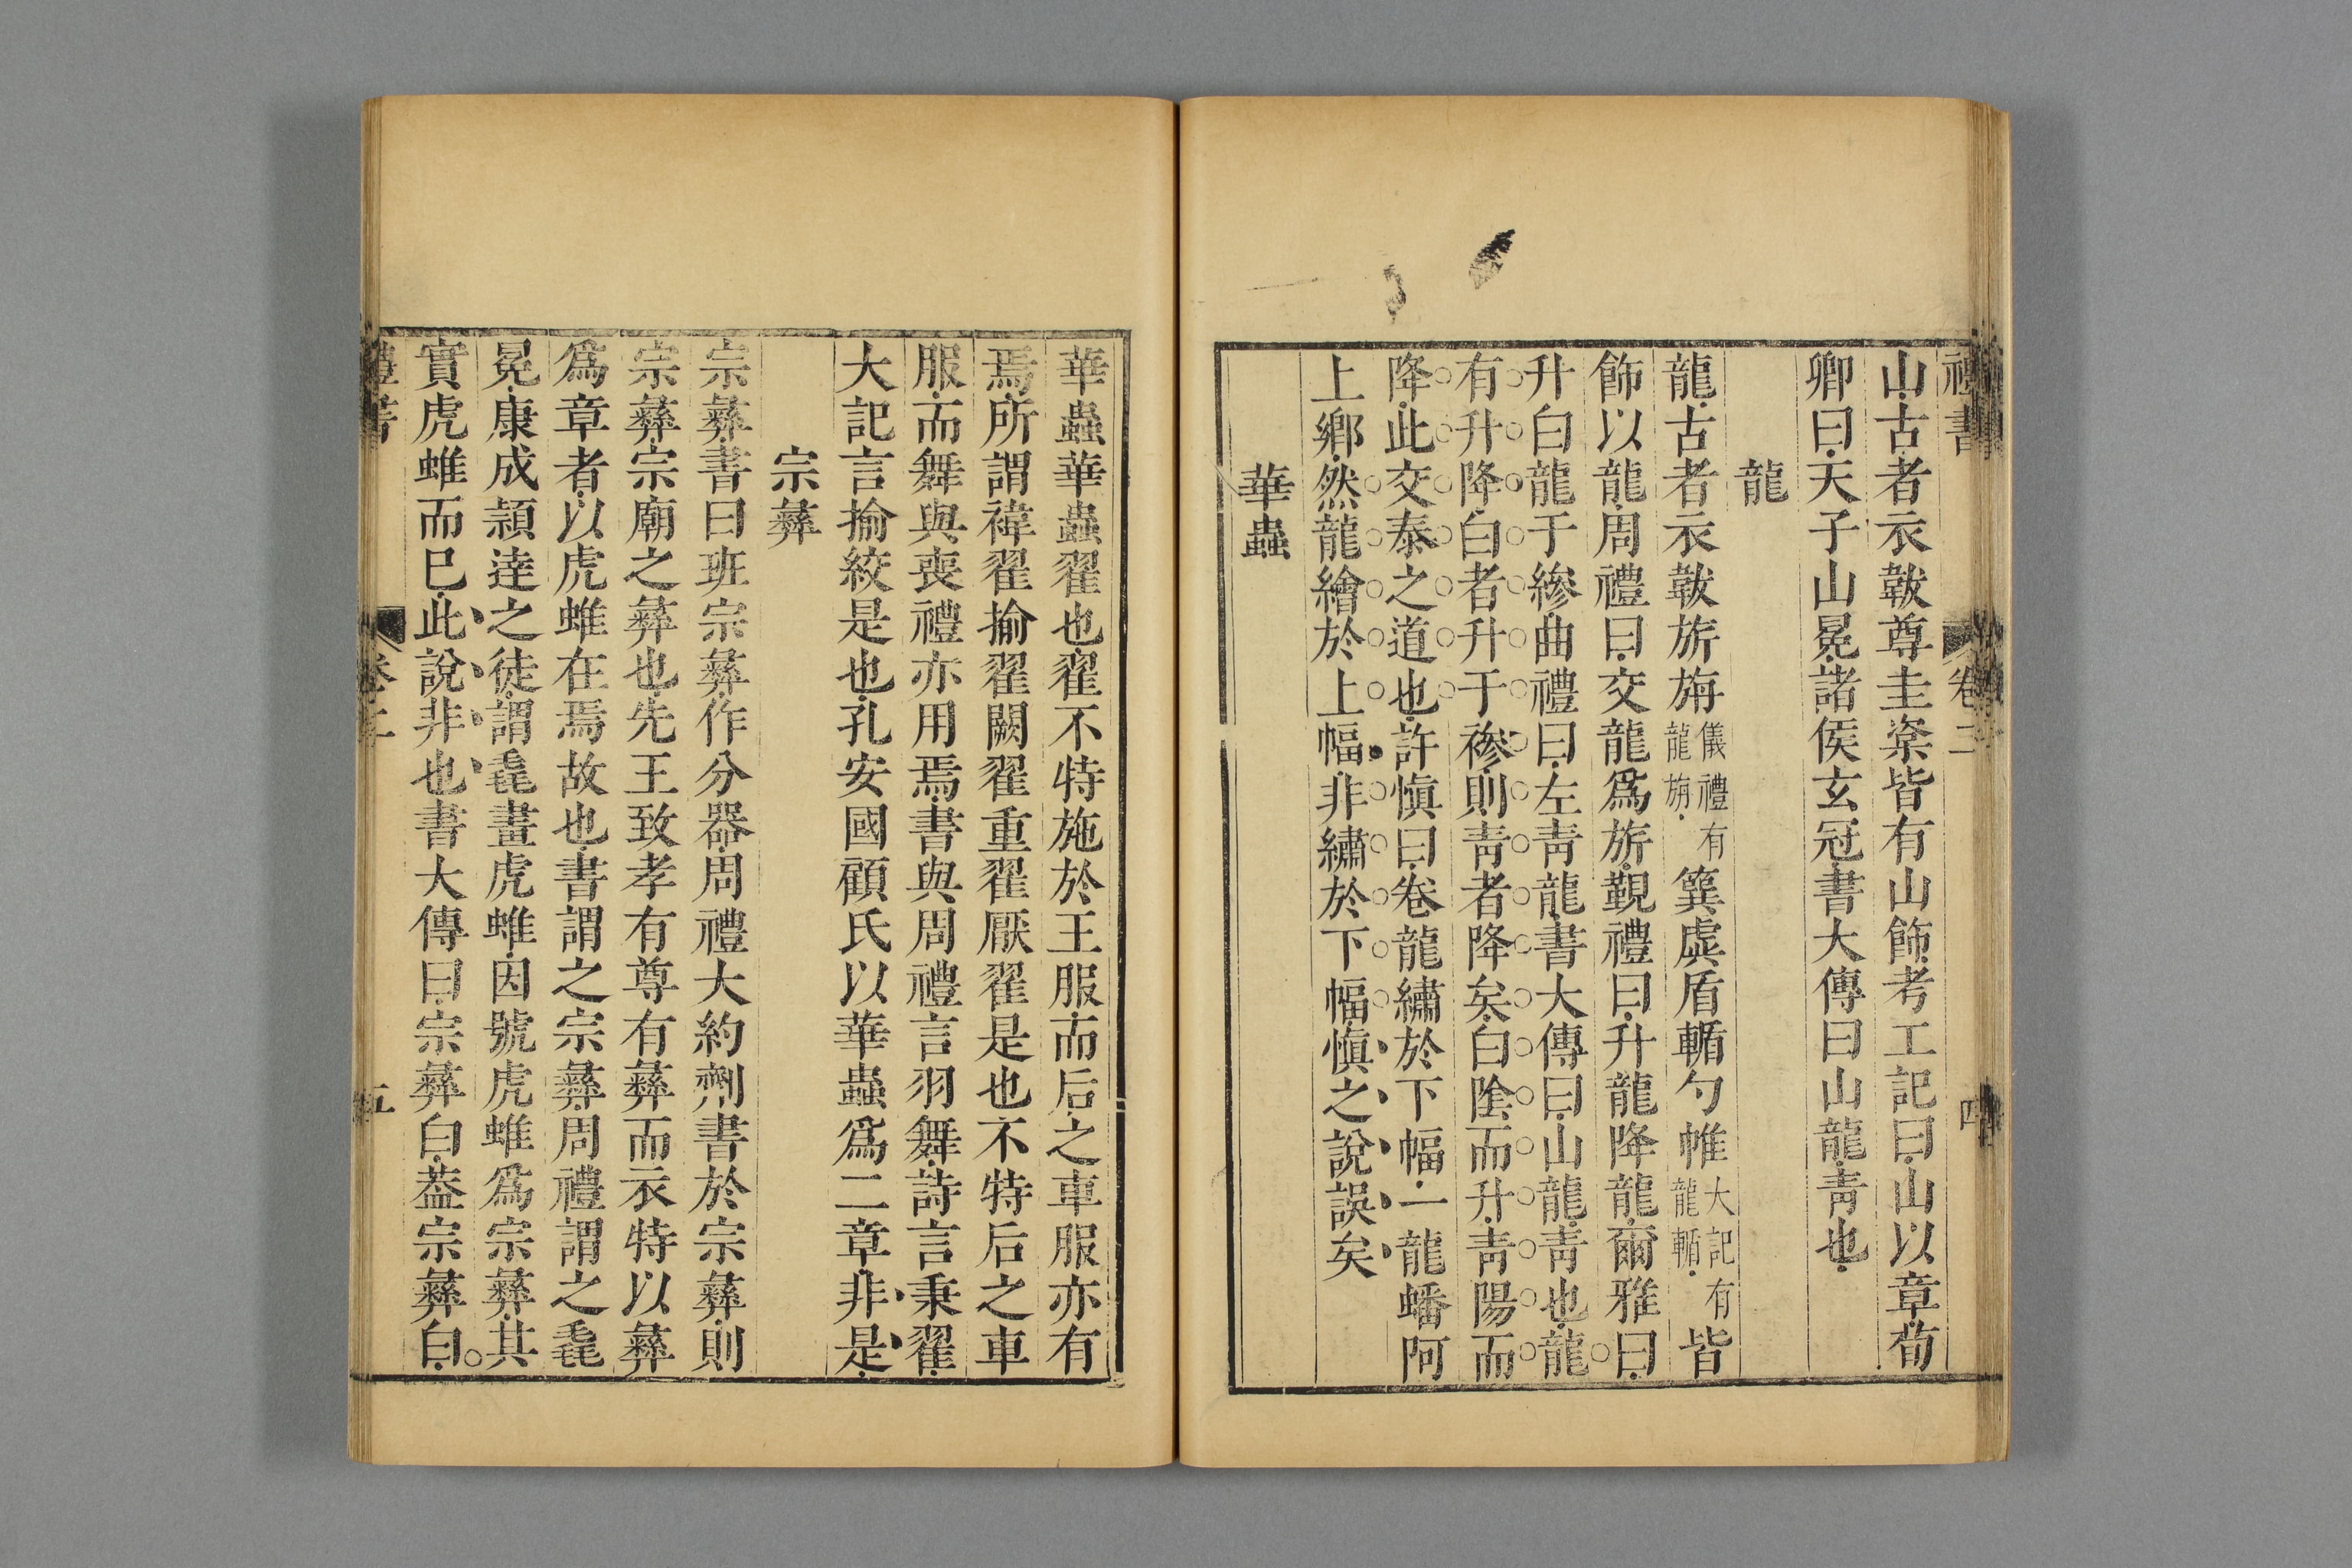 禮書 卷二 四
山古者衣韍尊圭楶皆有山飾考工記曰山以章荀
卿曰天子山冕諸侯玄冠書大傳曰山龍青也
龍
龍古者衣韍旂旜儀禮有龍旜簨虡盾輴勺帷大記有龍輴皆
飾以龍周禮曰交龍爲旂覲禮曰升龍降龍爾雅曰
升白龍于縿曲禮曰左青龍書大傳曰山龍青也龍
有升降白者升于襂則青者降矣白陰而升青陽而
降此交泰之道也許愼曰卷龍繡於下幅一龍蟠阿
上鄉然龍繪於上幅非繡於下幅愼之說誤矣
華蟲
華蟲華蟲翟也翟不特施於王服而后之車服亦有
焉所謂褘翟揄翟闕翟重翟厭翟是也不特后之車
服而舞與喪禮亦用焉書與周禮言羽舞詩言秉翟
大記言揄絞是也孔安國顧氏以華蟲爲二章非是
宗彝
宗彝書曰班宗彝作分器周禮大約劑書於宗彝則
宗彝宗廟之彝也先王致孝有尊有彝而衣特以彝
爲章者以虎蜼在焉故也書謂之宗彝周禮謂之毳
冕康成頴達之徒謂毳畫虎蜼因號虎蜼爲宗彝其
實虎蜼而巳此說非也書大傳曰宗彝白葢宗彝白
禮書 卷二 五